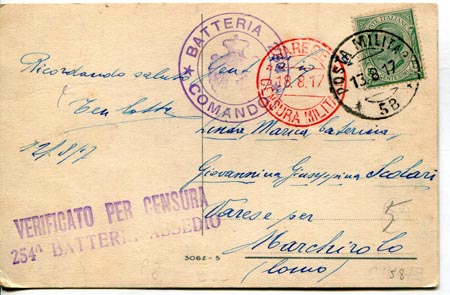 BATTERIA
COMANDO
VARESE
18.8.17
CENSURA MILIT
POSTA MILITARE
13.8.17
58
Ricordando saluto
12/8/17
Maria Caterina
Giovannina Giuseppina Scolari
Varese per
Marchirolo
(Como)
VERIFICATO PER CENSURA
254ª BATTERIA ASSEDIO
3062-5
5
58